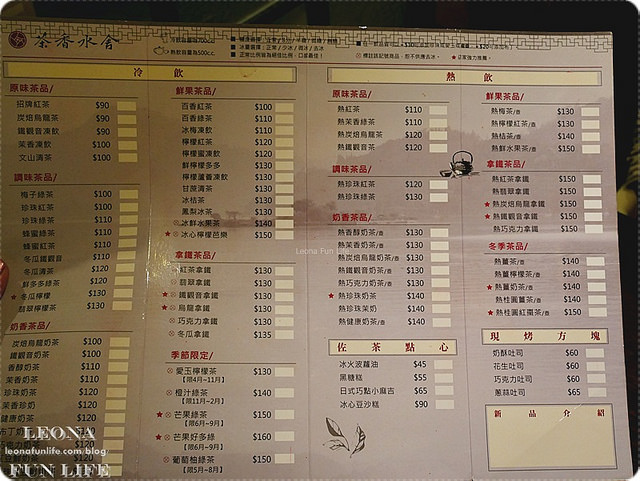 茶香水舍
冷飲
原味茶品/
招牌紅茶 $90
炭焙烏龍茶 $90
鐵觀音凍飲 $90
茉香凍飲 $100
文山清茶 $100
調味茶品/
梅子綠茶 $100
珍珠紅茶 $100
珍珠綠茶 $110
蜂蜜綠茶 $110
蜂蜜紅茶 $110
冬瓜鐵觀音 $110
冬瓜清茶 $120
鮮多多綠茶 $120
★冬瓜檸檬 $130
翡翠檸檬茶 $130
奶香茶品/
炭焙烏龍奶茶 $100
鐵觀音奶茶 $100
香醇奶茶 $110
茉香奶茶 $110
珍珠奶茶 $120
茉香珍奶 $120
健康奶茶 $120
布丁奶茶
鮮果茶品/
百香紅茶 $100
百香綠茶 $110
冰梅凍飲 $110
檸檬紅茶 $110
檸檬蜜凍飲 $120
鮮檸檬多多 $130
檸檬蘆薈凍飲 $130
甘蔗清茶 $130
冰桔茶 $130
鳳梨冰茶 $130
冰鮮水果茶 $140
★冰心檸檬芭樂 $150
拿鐵茶品/
紅茶拿鐵 $130
翡翠拿鐵 $130
★鐵觀音拿鐵 $130
★烏龍拿鐵 $130
巧克力拿鐵 $130
冬瓜拿鐵 $135
季節限定/
愛玉檸檬茶 $130
【限4月~11月】
橙汁綠茶 $140
【限11月~2月】
★芒果綠茶 $150
【限6月~9月】
★芒果好多綠 $160
【限6月~9月】
葡萄柚綠茶 $150
【限5月~8月】
熱飲
原味茶品/
熱紅茶 $110
熱茉香綠茶 $110
熱炭焙烏龍茶 $120
熱鐵觀音茶 $120
調味茶品/
熱珍珠紅茶 $120
熱珍珠綠茶 $130
奶香茶品/
熱香醇奶茶/壺 $130
熱茉香奶茶/壺 $130
熱炭焙烏龍奶茶/壺 $130
熱鐵觀音奶茶/壺 $130
熱巧克力奶茶/壺 $130
★熱珍珠奶茶 $140
熱珍珠茉奶 $140
熱健康奶茶/壺 $140
佐茶點心
冰火波蘿油 $45
黑糖糕 $55
日式巧點小麻吉 $65
冰心豆沙糕 $90
鮮果茶品/
熱梅茶/壺 $130
熱檸檬紅茶/壺 $130
熱桔茶/壺 $140
熱鮮水果茶/壺 $150
拿鐵茶品/
熱紅茶拿鐵 $150
熱翡翠拿鐵 $150
★熱炭焙烏龍拿鐵 $150
★熱鐵觀音拿鐵 $150
熱巧克力拿鐵 $150
冬季茶品/
熱薑茶/壺 $140
熱薑檸檬茶/壺 $140
★熱薑奶茶/壺 $140
熱桂圓薑茶/壺 $140
★熱桂圓紅棗茶/壺 $150
現烤方塊
奶酥吐司 $60
花生吐司 $60
巧克力吐司 $60
蔥蒜吐司 $65
新品介紹
Leona Fun
LEONA
leonafunlife.com/blog
FUN LIFE